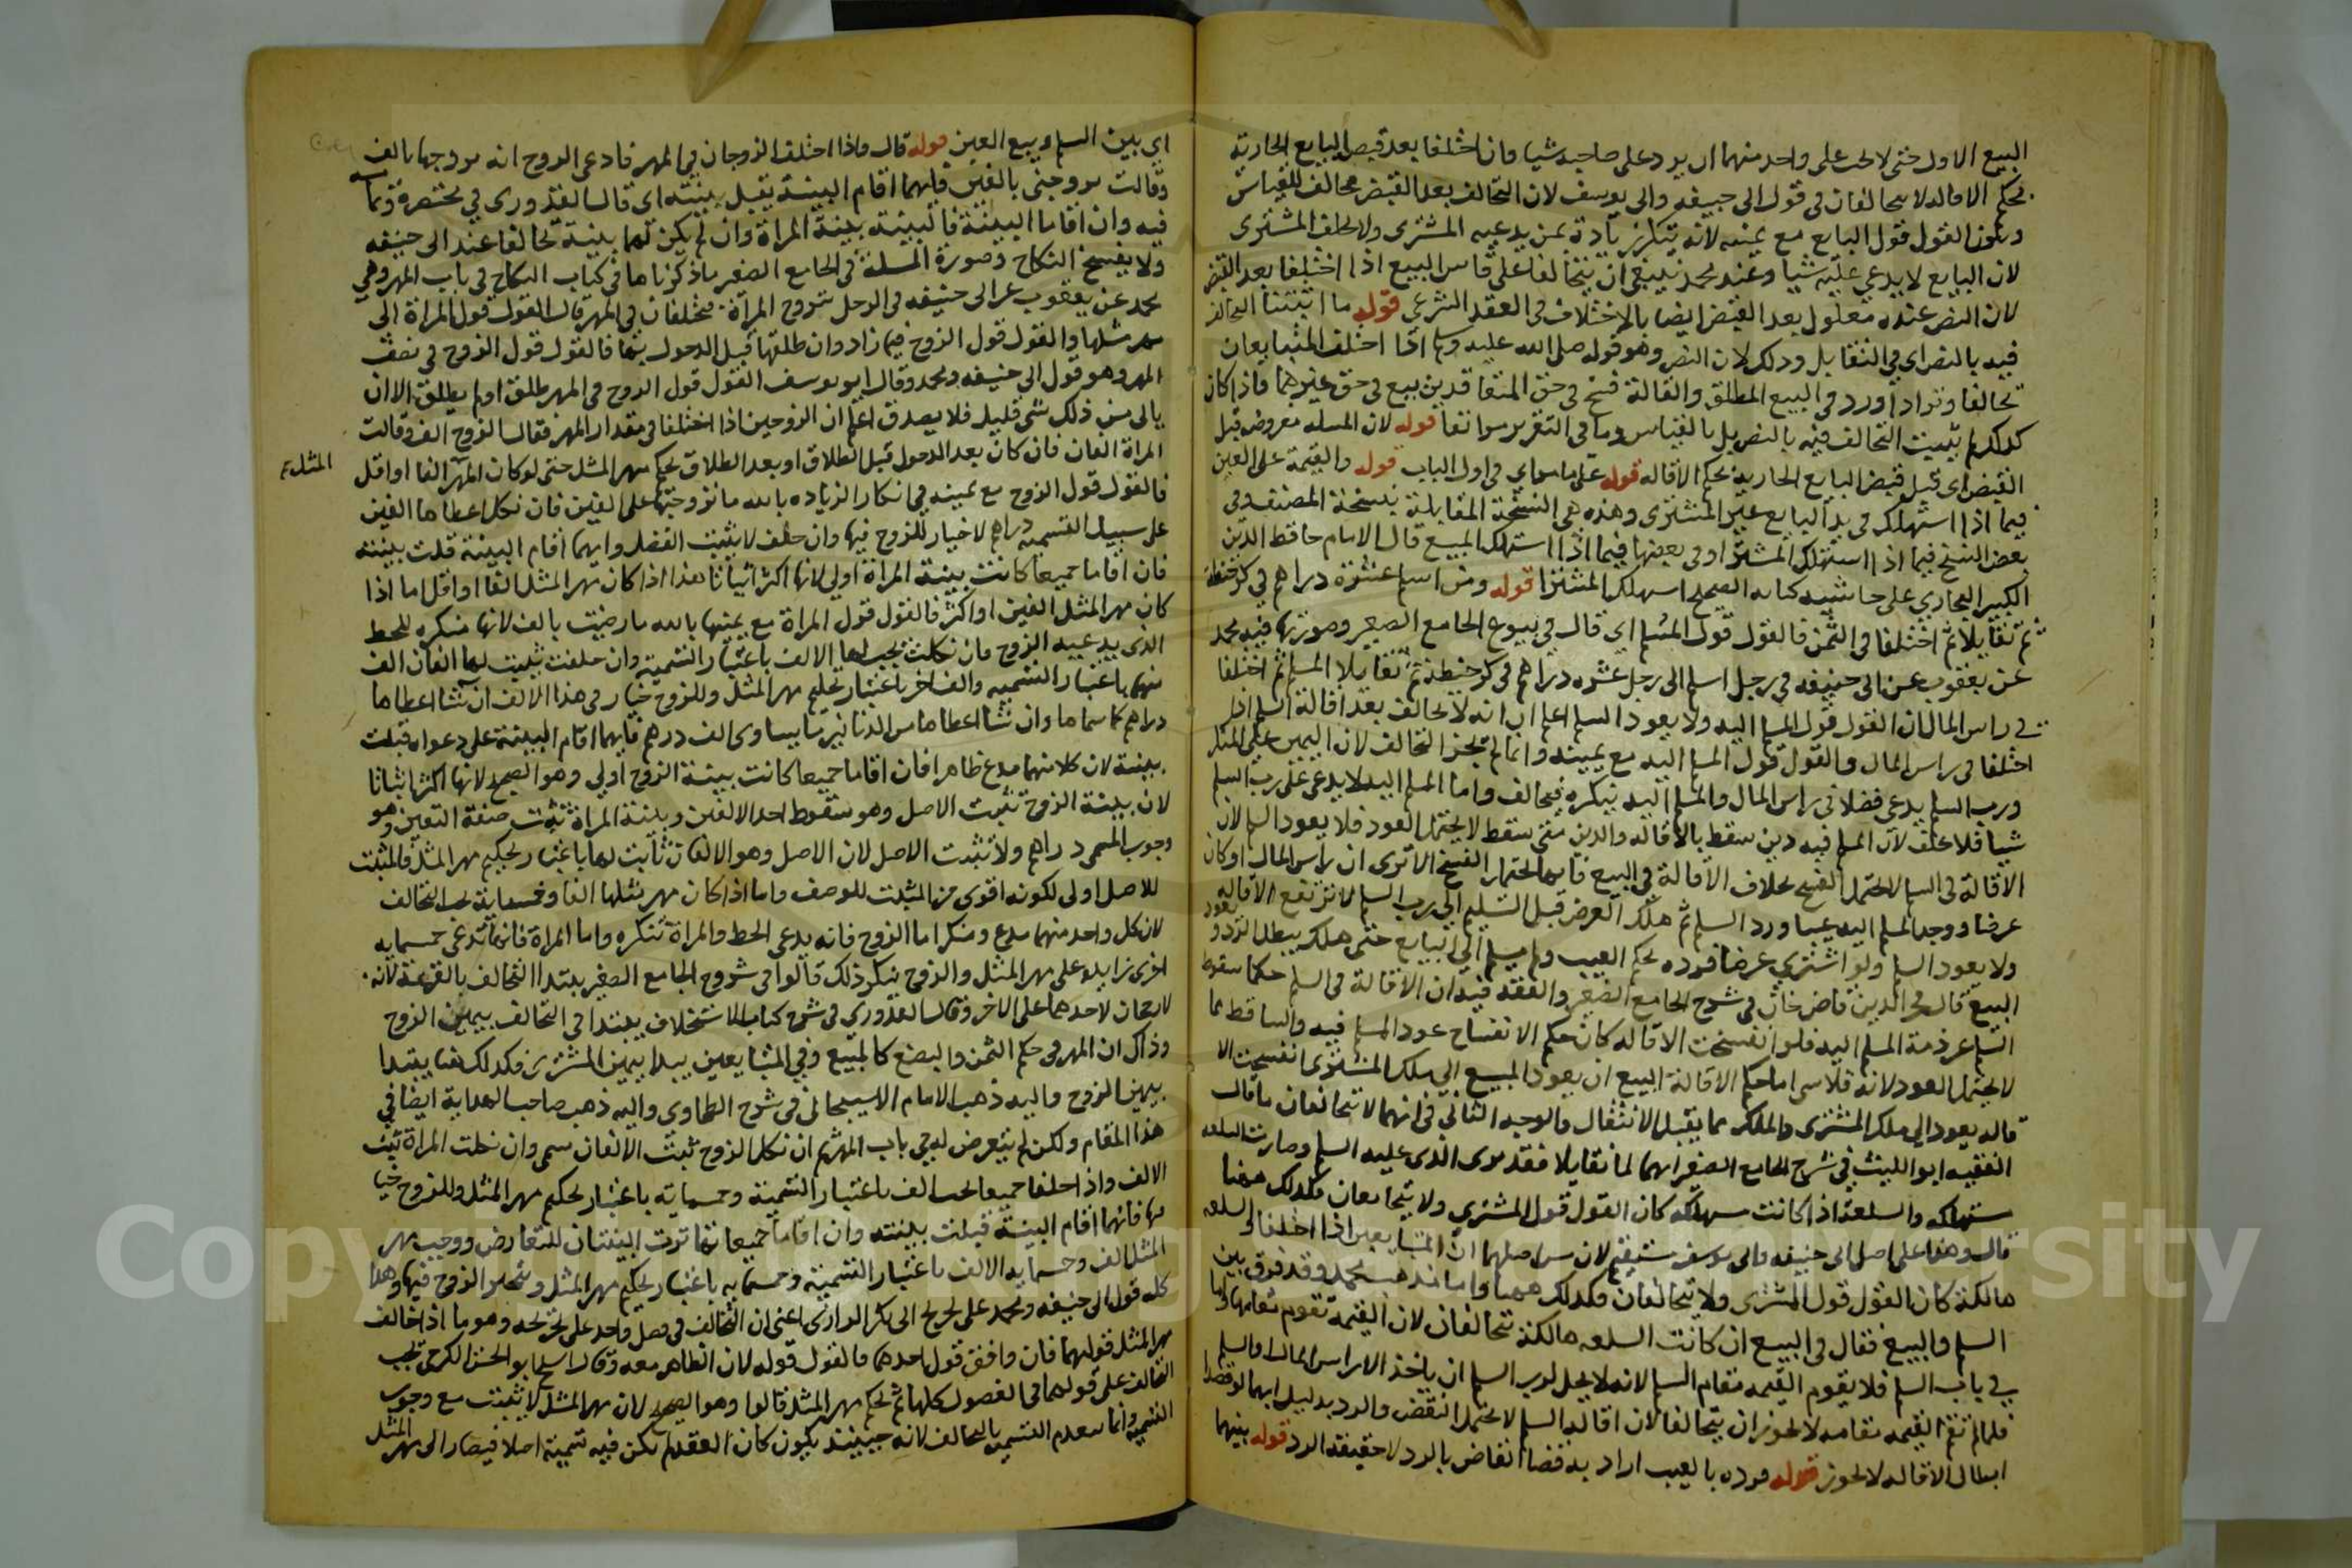 البيع الاول حتى لا يجب على واحد منهما ان يرد على صاحبه شيا وان اختلفا بعد قبض البايع الجارية
بحكم الاقاله لا يتحالفان في قول ابى حنيفه وابى يوسف لان التحالف بعد القبض مخالف للقياس
ويكون القول قول البايع مع يمينه لانه ينكر زيادة ثمن يدعيه المشترى ولا يحلف المشترى
لان البايع لا يدعي عليه شيا وعند محمد ينبغى ان يتحالفا على قياس البيع اذا اختلفا بعد القبض
لان النص عنده معلول بعد القبض ايضا بالاختلاف في العقد الشرعى قوله ما اثبتنا التحالف
فيه بالنص اي في التقايل وذلك لان النص وهو قوله صلى الله عليه وسلم اذا اختلف المتبايعان
تحالفا وترادا ورد في البيع المطلق والقالة فسخ في حق المتعاقدين بيع في حق غيرهما فاذا كان
كذلك لم يثبت التحالف فيه بالنص بل بالقياس وما في التقرير مر انفا قوله لان المسله مفروضه قبل
القبض اى قبل قبض البايع الجارية بحكم الاقاله قوله على ما مر اي في اول الباب قوله والقيمة على العين
فيما اذا استهلك في يد البايع غير المشترى وهذه هي النسخة المقابلة بنسخة المصنف وفى
بعض النسخ فيما اذا استهلك المشترا وفى بعضها فيما اذا استهلك المبيع قال الامام حافظ الدين
الكبير البخاري على حاشيه كتابه الصحيح استهلك المشترا قوله ومن اسلم عشرة دراهم في كر حنطة
ثم تقايلا ثم اختلفا في الثمن فالقول قول المسلم اي قال في بيوع الجامع الصغير وصورتها فيه محمد
عن يعقوب عن ابى حنيفه في رجل اسلم الى رجل عشره دراهم في كر حنطة ثم تقايلا المسلم ثم اختلفا
في راس المال ان القول قول المسلم اليه ولا يعود السلم اعلم ان انه لا تحالف بعد اقالة السلم اذا
اختلفا في راس المال والقول قول المسلم اليه مع يمينه وانما لم يجز التحالف لان اليمين على المنكر
ورب السلم يدعى فضلا في راس المال والمسلم اليه ينكره فيحالف واما المسلم اليه لا يدعى على رب السلم
شيا فلا يحلف لان المسلم فيه دين سقط بالاقاله والدين متى سقط لا يحتمل العود فلا يعود السلم لان
الاقالة في السلم لا يحتمل الفسخ بخلاف الاقالة في البيع فانها تحتمل الفسخ الا ترى ان راس المال لو كان
عرضا ووجد المسلم اليه عيبا ورد السلم ثم هلك العرض قبل التسليم الى رب السلم لا ترتفع الاقاله
ولا يعود السلم ولو اشترى عرضا فرده بحكم العيب ولم يسلم الى البايع حتى هلك يبطل الرد ويعود
البيع قال فخر الدين قاضى خان في شرح الجامع الصغير والفقه فيه ان الاقالة في السلم حكما سقوط
السلم عن ذمة المسلم اليه فلو انفسخت الاقاله كان حكم الانفساخ عود المسلم فيه والساقط مما
لا يحتمل العود لانه تلاشى اما حكم الاقالة البيع ان يعود المبيع الى ملك المشترى انفسخت الا
قاله يعود الى ملك المشترى والملك مما يقبل الانتقال والوجه الثانى في انهما لا يتحالفان ما قال
الفقيه ابو الليث في شرح الجامع الصغير انهما لما تقايلا فقد توى الذى عليه السلم وصارت السلعه
مستهلكه والسلعة اذا كانت مستهلكه كان القول قول المشترى ولا يتحالفان فكذلك ههنا
قال وهذا على اصل ابى حنيفه وابى يوسف مستقيم لان من اصلهما ان المتبايعين اذا اختلفا والسلعه
هالكة كان القول قول المشترى ولا يتحالفان فكذلك ههنا واما مذهب محمد وقد فرق بين
السلم والبيع فقال في البيع ان كانت السلعه هالكة يتحالفان لان القيمة تقوم مقامها واما
في باب السلم فلا يقوم القيمه مقام السلم لانه لا يحل لرب السلم ان ياخذ الا راس المال او السلم
فلما لم تقم القيمه مقامه لا يجوز ان يتحالفا لان اقالة السلم لا تحتمل النقض والرد بدليل انهما لو قصدا
ابطال الاقاله لا يجوز قوله فرده بالعيب اراد به قضا القاض بالرد لا حقيقة الرد قوله بينهما
اي بين السلم وبيع العين قوله قال واذا اختلف الزوجان في المهر فادعى الزوج انه تزوجها بالف
وقالت تزوجني بالفين فايهما اقام البينة يقبل بينته اى قال القدورى في مختصره وتمامه
فيه وان اقاما البينة فالبينة بينة المراة وان لم يكن لهما بينة تحالفا عند ابى حنيفه
ولا يفسخ النكاح وصورة المسلة في الجامع الصغير ما ذكرناها في كتاب النكاح في باب المهر وهي
محمد عن يعقوب عن ابى حنيفه في الرجل تزوج المراة فيختلفان في المهر قال القول قول المراة الى
مهر مثلها والقول قول الزوج فيما زاد وان طلقها قبل الدخول بها فالقول قول الزوج في نصف
المهر وهو قول ابي حنيفه ومحمد وقال ابو يوسف القول قول الزوج في المهر طلق او لم يطلق الا ان
ياتى من ذلك شى قليل فلا يصدق اعلم ان الزوجين اذا اختلفا في مقدار المهر فقال الزوج الف وقالت
المراة الفان فان كان بعد الدخول قبل الطلاق او بعد الطلاق يحكم مهر المثل حتى لو كان المهر الفا او اقل
المثل
فالقول قول الزوج مع يمينه في انكار الزياده بالله ما تزوجتها على الفين فان نكل اعطاها الفين
على سبيل التسمية دراهم لا خيار للزوج فيها وان حلف لا يثبت الفضل وايهما اقام البينة قبلت بينته
فان اقاما جميعا كانت بينة المراة اولى لانها اكثر اثباتا هذا اذا كان مهر المثل الفا او اقل اما اذا
كان مهر المثل الفين او اكثر فالقول قول المراة مع يمينها بالله ما رضيت بالف لانها منكره للحط
الذى يدعيه الزوج فان نكلت يجب لها الالف باعتبار التسمية وان حلفت يثبت لها الفان الف
منها باعتبار التسميه والف اخر باعتبار تحكيم مهر المثل وللزوج خيار في هذا الالف ان شا اعطاها
دراهم كما سماها وان شا اعطاها من الدنانير ما يساوى الف درهم فايهما اقام البينة على دعواه قبلت
بينة لان كلا منهما مدع ظاهرا فان اقاما جميعا كانت بينة الزوج اولى وهو الصحيح لانها اكثر اثباتا
لان بينة الزوج تثبت الاصل وهو سقوط احد الالفين وبينة المراة تثبت صفة التعين وهو
وجوب المسمى دراهم ولا تثبت الاصل لان الاصل وهو الالفان ثابت لها باعتبار تحكيم مهر المثل فالمثبت
للاصل اولى لكونه اقوى من المثبت للوصف واما اذا كان مهر مثلها الفا وخمسماية يجب التحالف
لان كل واحد منهما مدع ومنكر اما الزوج فانه يدعى الحط والمراة تنكره واما المراة فانها تدعى خمسمايه
اخرى زايده على مهر المثل والزوج ينكر ذلك قالوا في شروح الجامع الصغير يبتدا التحالف بالقرعة لانه
لا رجحان لاحدهما على الاخر وقال القدورى في شرح كتاب الاستحلاف يبتدا في التحالف بيمين الزوج
وذاك ان المهر في حكم الثمن والبضع كالمبيع وفي المتبايعين يبدا بيمين المشترى فكذلك هنا يبتدا
بيمين الزوج واليه ذهب الامام الاسبيجابى في شرح الطحاوى واليه ذهب صاحب الهداية ايضا في
هذا المقام ولكن لم يتعرض له في باب المهر ثم ان نكل الزوج ثبت الالفان سمى وان نكلت المراة ثبت
الالف واذا حلفا جميعا يجب الف باعتبار التسمية وخمسماية باعتبار تحكيم مهر المثل وللزوج خيار
فيها فايهما اقام البينة قبلت بينته وان اقاما جميعا تهاترت البينتان للتعارض ووجب مهر
المثل الف وخمسمايه الالف باعتبار التسمية وخمسمايه باعتبار تحكيم مهر المثل ويتخير الزوج فيها وهذا
كله قول ابى حنيفه ومحمد على تخريج ابى بكر الرازى اعنى ان التحالف في فصل واحد على تخريجه وهو ما اذا خالف
مهر المثل قولهما فان وافق قول احدهما فالقول قوله لان الظاهر معه وقال الشيخ ابو الحسن الكرخى يجب
التحالف على قولهما في الفصول كلها ثم يحكم مهر المثل قالوا وهو الصحيح لان مهر المثل لا يثبت مع وجوب
التسمية وانما ينعدم التسميه بالتحالف لانه حينئذ يكون كان العقد لم يكن فيه تسمية اصلا فيصار الى مهر المثل